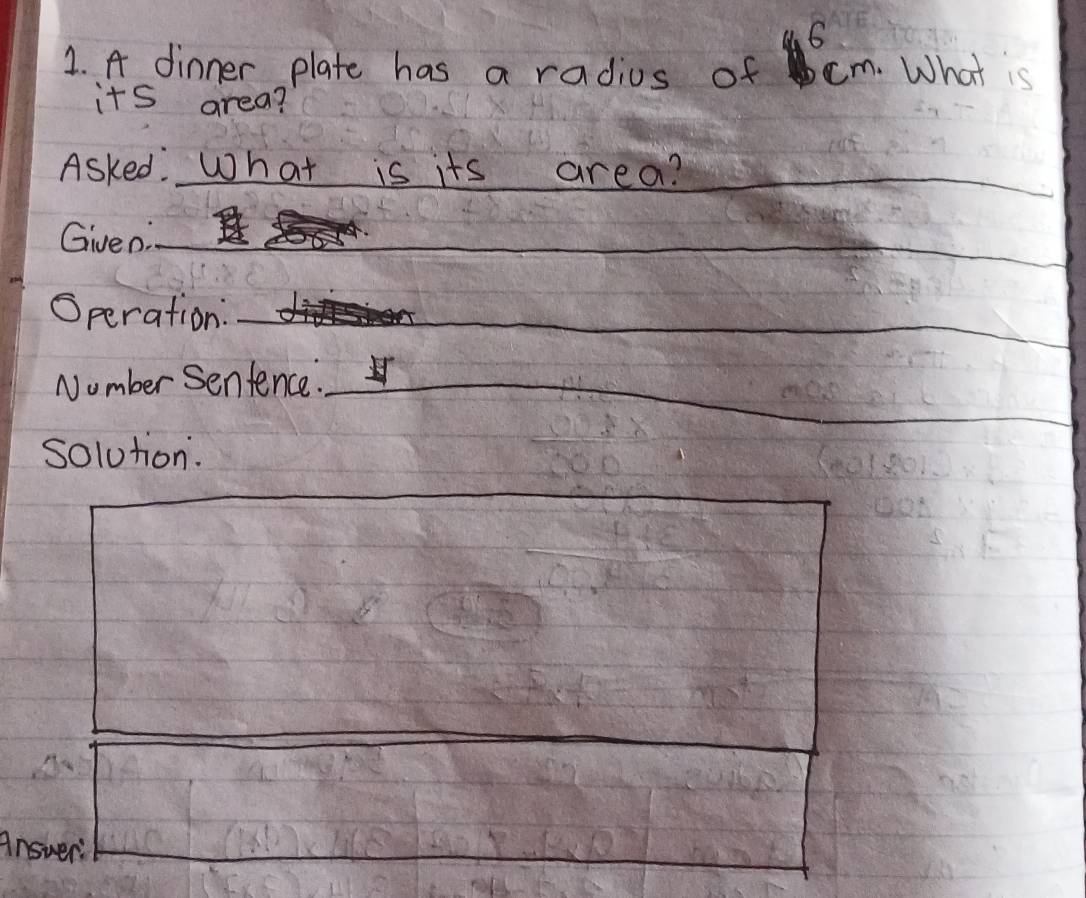 1. A dinner plate has a radius of 6 cm. What is
its area?
Asked: What is its area?
Given:
Operation:
Number Sentence:
Solution:
Answer: